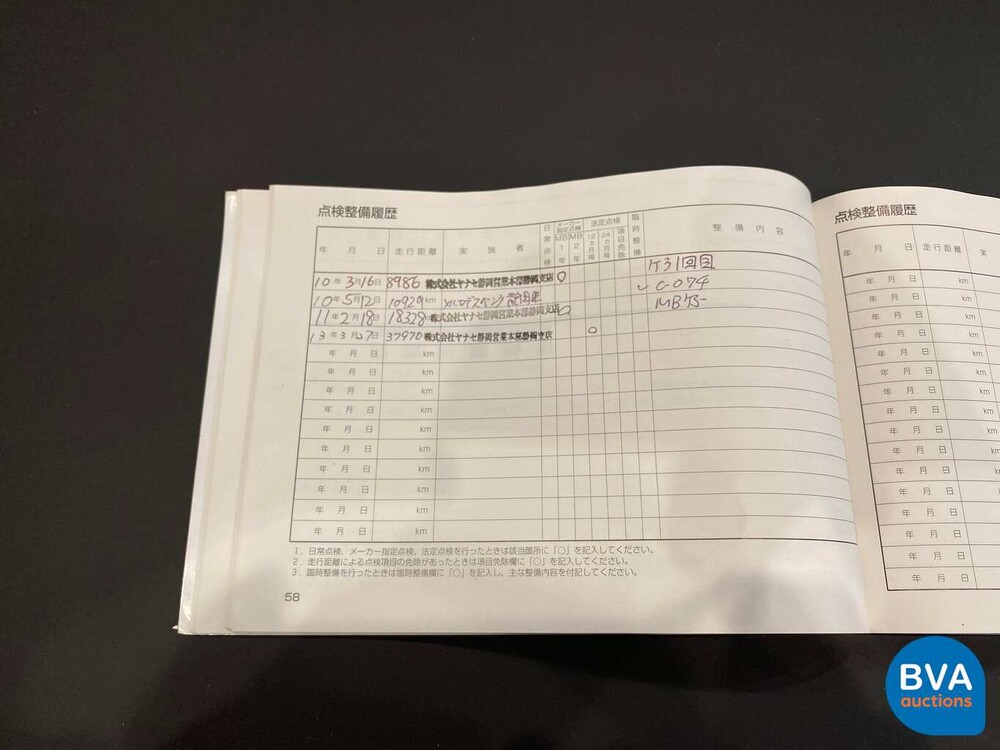 点検整備履歴
年 月 日 走行距離 実施者 日常点検 メーカー指定点検 MB1年 MB2年 法定点検 12カ月毎 24カ月毎 項目免除 臨時整備 整備内容
10年3月16日 8986 株式会社ヤナセ静岡営業本部静岡支店 ○
10年5月12日 10929km メルセデスベンツ
11年2月18日 18328 株式会社ヤナセ静岡営業本部静岡支店 ○
13年3月27日 37970 株式会社ヤナセ静岡営業本部静岡支店 ○
年 月 日 km
年 月 日 km
年 月 日 km
年 月 日 km
年 月 日 km
年 月 日 km
年 月 日 km
年 月 日 km
年 月 日 km
年 月 日 km
1. 日常点検、メーカー指定点検、法定点検を行ったときは該当箇所に「○」を記入してください。
2. 走行距離による点検項目の免除があったときは項目免除欄に「○」を記入してください。
3. 臨時整備を行ったときは臨時整備欄に「○」を記入し、主な整備内容を付記してください。
58
点検整備履歴
年 月 日 走行距離 実
年 月 日
年 月 日
年 月 日
年 月 日
年 月 日
年 月 日
年 月 日 km
年 月 日 km
年 月 日 km
年 月 日 km
年 月 日 km
年 月 日 km
年 月 日 km
年 月 日 km
BVA
auctions